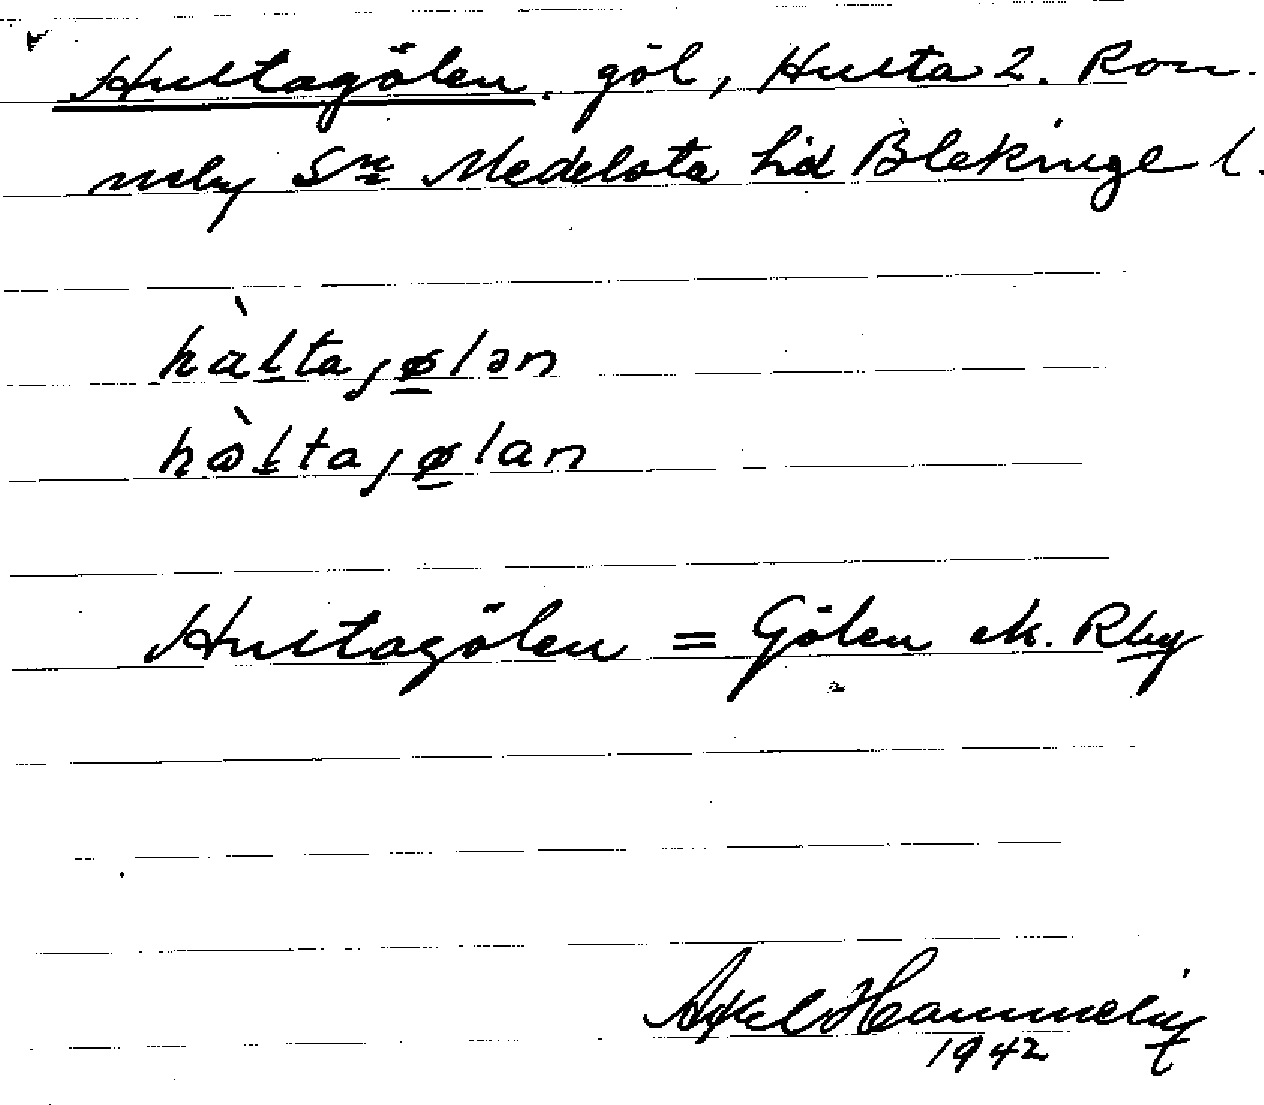 Hultagölen. göl, Hulta 2. Ron-
neby Sn Medelsta hd Blekinge l.
hàltajølən
hòltajølan
Hultagölen = Gölen ek. Rby
Axel Hammelin
1942